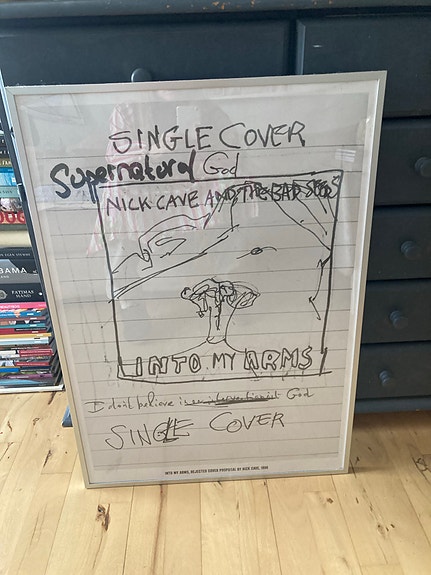 SINGLE COVER
Supernatural God
NICK CAVE AND THE BAD SEEDS
INTO MY ARMS
I don't believe in an interventionist God
SINGLE COVER
INTO MY ARMS, REJECTED COVER PROPOSAL BY NICK CAVE, 1996
BAMA
FATIMAS
HAND